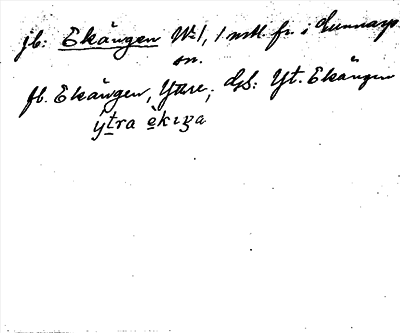 jb: Ekängen № 1, 1 mtl. fr. i Gunnarps
sn.
fb. Ekängen, Yttre; GS: Yt. Ekängen
ýtra èkıŋa